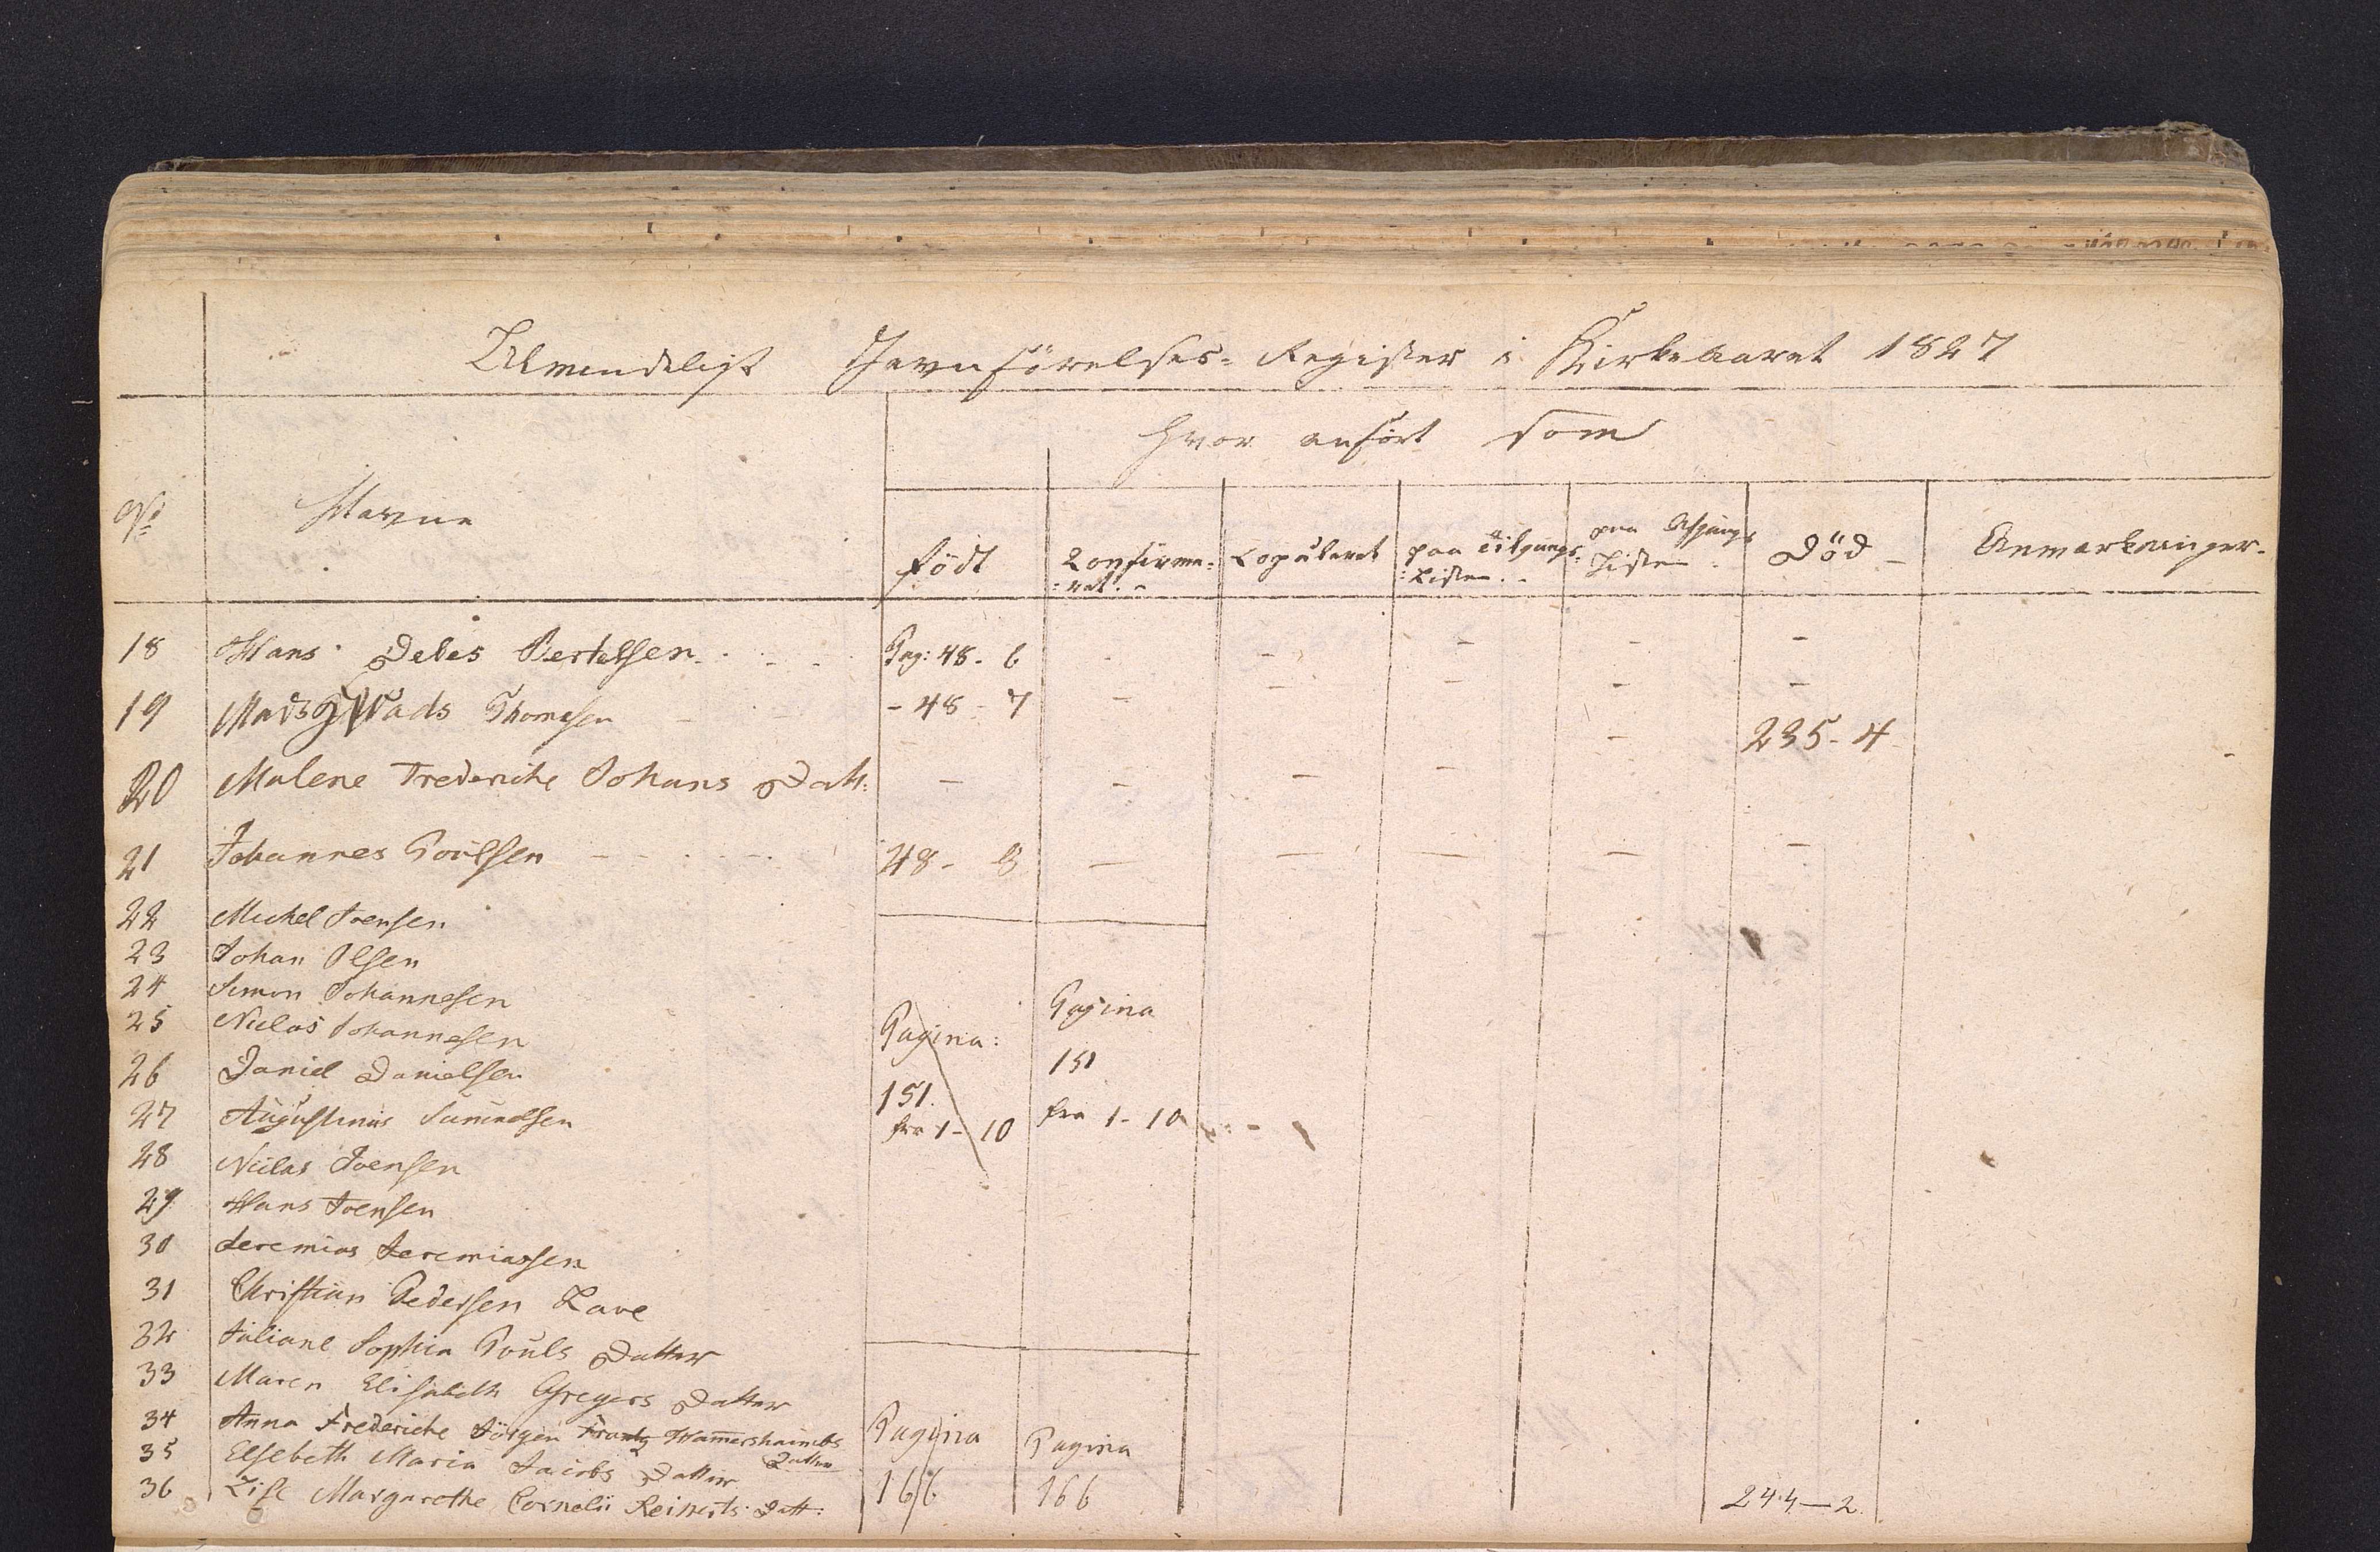 Allmindeligt Jevnførelses-Register i Kirkeaaret 1827
Hvor anført som
No Navne
Født Confirme=ret. Copuleret paa Tilgangs=Listen. paa Afgangs Listen. Død Anmærkninger.
18 Hans Debes Bertelsen Pag: 48. 6 - - - - -
19 Mads Thomesen - 48 - 7 - - - - -
20 Malene Frederiche Johans Datt: - - - - - 235-4
21 Johannes Poulsen 48- 8 - - - - -
22 Michel Joensen
23 Johan Olsen
24 Simon Johannesen
25 Niclas Johannesen Pagina: Pagina
26 Daniel Danielsen 151. 151
27 Augustinus Samuelsen fra 1-10 fra 1-10
28 Niclas Joensen
29 Hans Joensen
30 Jeremias Jeremiassen
31 Christian Pedersen Lave
32 Juliane Sophia Pouls Datter
33 Maren Elisabeth Gregers Datter
34 Anna Frederiche Jörgen Frantz Hamershaimbs Datter Pagina Pagina
35 Elsebeth Maria Jacobs Datter
36 Lise Margarethe Cornelii Reinerts Datt: 166 166 244-2